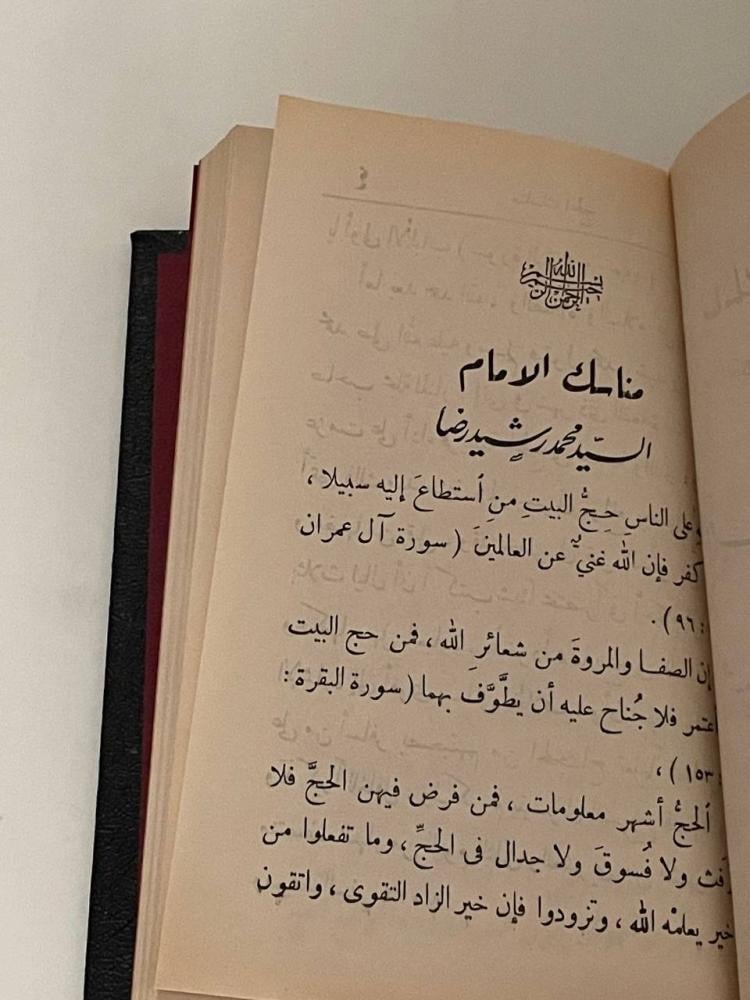 بسم الله الرحمن الرحيم
مناسك الامام
السيد محمد رشيد رضا
على الناسِ حِجُّ البيتِ منِ أستطاعَ إليه سبيلا ،
كفر فإن الله غنيٌّ عن العالمينَ ( سورة آل عمران
: ٩٦ ) .
إن الصفا والمروةَ من شعائرِ الله ، فمن حج البيت
أعتمر فلا جُناح عليه أن يطَّوَّف بهما ( سورة البقرة :
١٥٣ ) ،
ألحجُّ أشهر معلومات ، فمن فرض فيهن الحجَّ فلا
رفث ولا فُسوقَ ولا جدال فى الحجِّ ، وما تفعلوا من
خير يعلمْه الله ، وتزودوا فإن خير الزاد التقوى ، واتقون